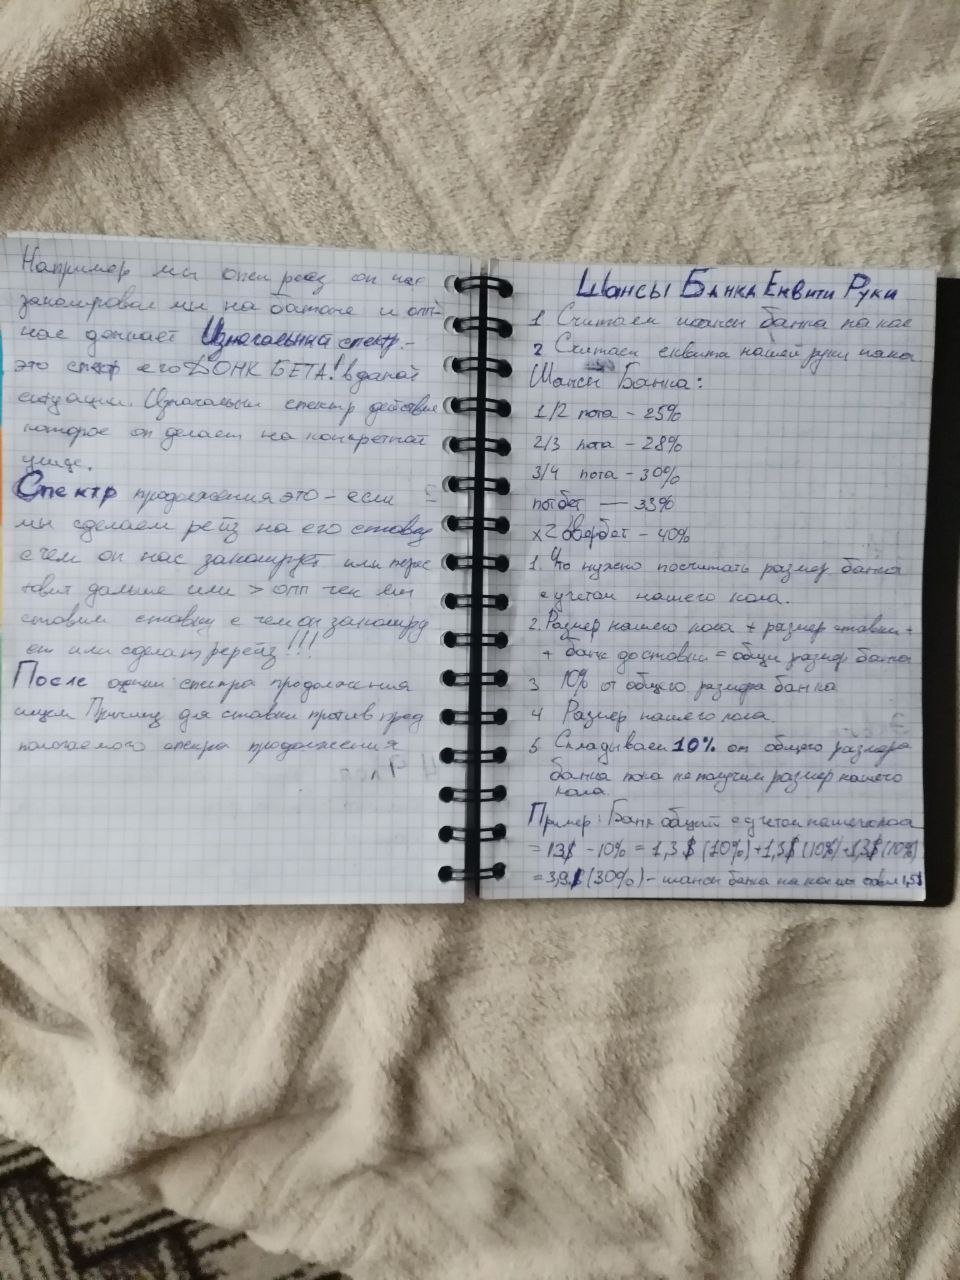 Например мы опен рейз он нас
заколировал мы на батоне и опп-
нас донкает Изначальный спектр -
это спектр его ДОНК БЕТА! в даной
ситуации. Изначальный спектр действие
которое он делает на конкретной
улице.
Спектр продолжения это - если
мы сделаем рейз на его ставку
с чем он нас заколирует или перес
тавит дальше или > опп чек мы
ставим ставку с чем он заколиру
ет или сделат ререйз!!!
После оценки спектра продолжения
ищем Причину для ставки против пред
пологаемого спектра продолжения
Шансы Банка Еквити Руки
1 Считаем шансы банка на кол
2 Считаем еквити нашей руки
Шансы Банка:
1/2 пота - 25%
2/3 пота - 28%
3/4 пота - 30%
потбет — 33%
x2 Овербет - 40%
1. Что нужно посчитать размер банка
с учетом нашего кола.
2. Размер нашего кола + размер ставки +
+ банк до ставки = общий размер банка
3 10% от общего размера банка
4 Размер нашего кола.
5. Складываем 10% от общего размера
банка пока не получим размер нашего
кола.
Пример: Банк общий с учетом нашего кола
= 13$ - 10% = 1,3$ (10%) + 1,3$ (10%) + 1,3$ (10%)
= 3,9$ (30%) - шансы банка на кол